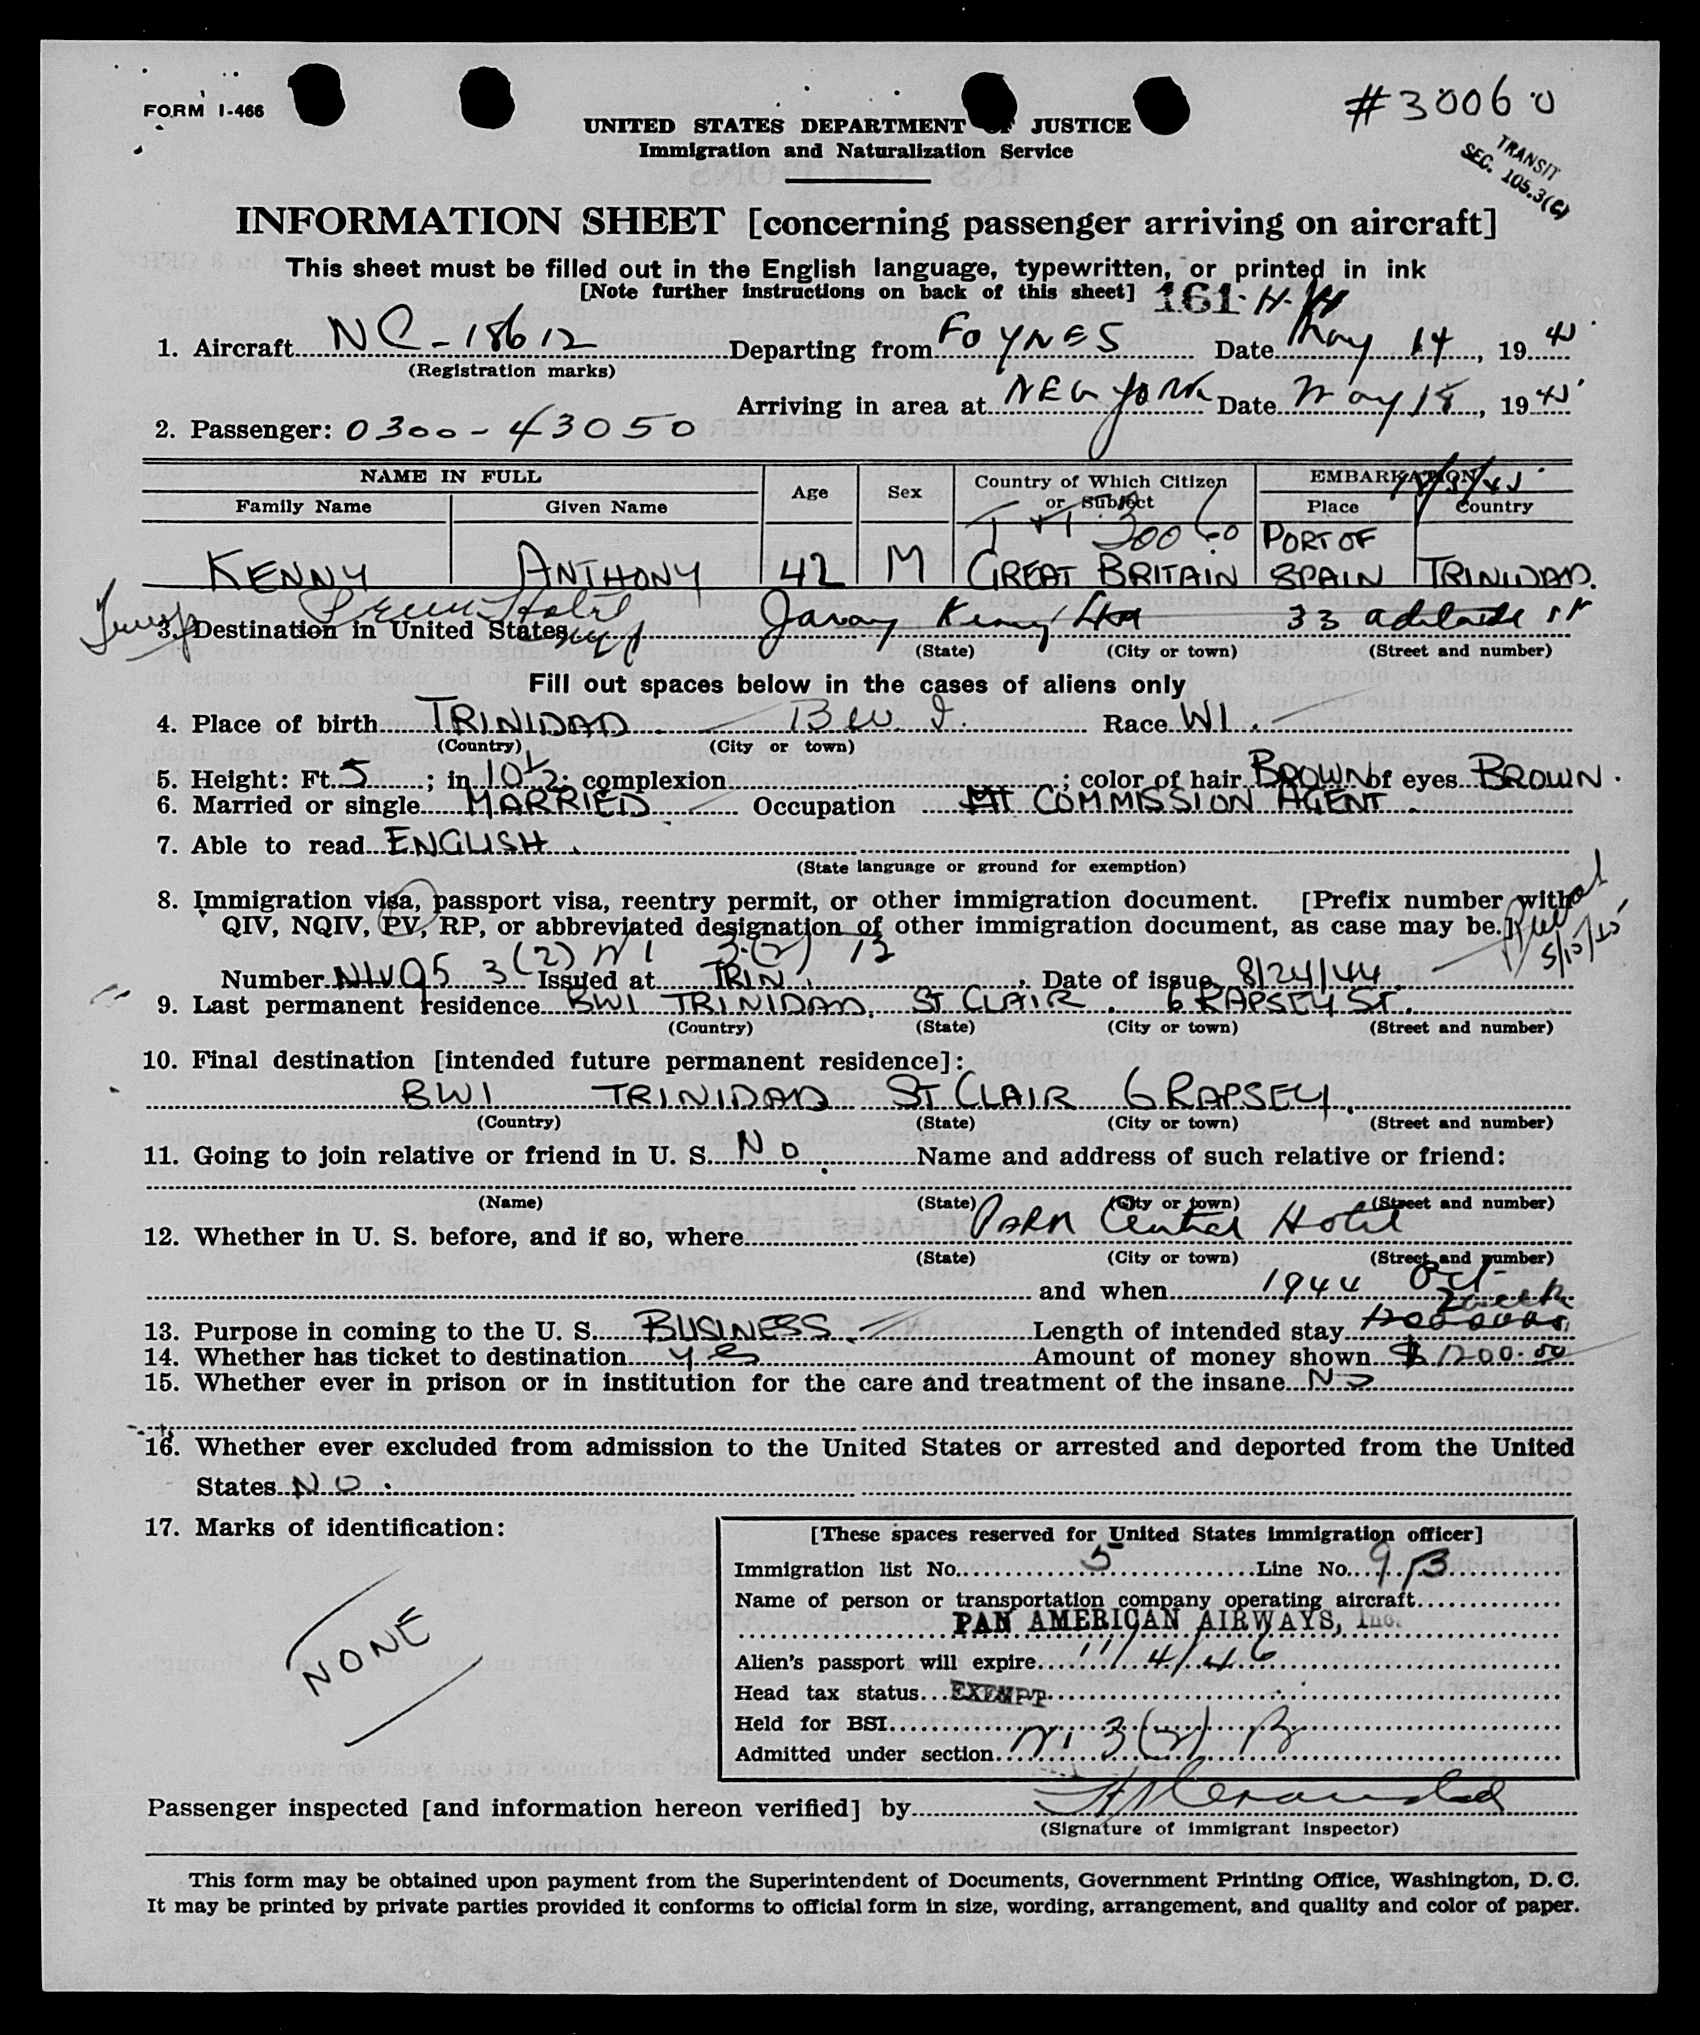 FORM I-466
#30060
UNITED STATES DEPARTMENT OF JUSTICE
Immigration and Naturalization Service
TRANSIT
SEC. 105.3(C)
INFORMATION SHEET [concerning passenger arriving on aircraft]
This sheet must be filled out in the English language, typewritten, or printed in ink
[Note further instructions on back of this sheet] 161
1. Aircraft NC-18612 Departing from FOYNES Date May 14, 1945
(Registration marks)
Arriving in area at NEW YORK Date May 18, 1945
2. Passenger: 0300-43050
NAME IN FULL Age Sex Country of Which Citizen or Subject EMBARKATION
Family Name Given Name Place Country
30060
KENNY ANTHONY 42 M GREAT BRITAIN PORT OF SPAIN TRINIDAD.
3. Destination in United States Kenny Ltd 33 Adelaide St
(State) (City or town) (Street and number)
Fill out spaces below in the cases of aliens only
4. Place of birth TRINIDAD B W I. Race WI.
(Country) (City or town)
5. Height: Ft. 5; in. 10 1/2; complexion; color of hair BROWN of eyes BROWN.
6. Married or single MARRIED Occupation COMMISSION AGENT.
7. Able to read ENGLISH.
(State language or ground for exemption)
8. Immigration visa, passport visa, reentry permit, or other immigration document. [Prefix number with
QIV, NQIV, PV, RP, or abbreviated designation of other immigration document, as case may be.]
3(2)
Number Issued at TRIN. Date of issue 8/24/44
9. Last permanent residence BWI TRINIDAD, ST CLAIR 6 RAPSEY ST.
(Country) (State) (City or town) (Street and number)
10. Final destination [intended future permanent residence]:
BWI TRINIDAD ST CLAIR 6 RAPSEY.
(Country) (State) (City or town) (Street and number)
11. Going to join relative or friend in U. S. NO. Name and address of such relative or friend:
(Name) (State) (City or town) (Street and number)
12. Whether in U. S. before, and if so, where Park Central Hotel
(State) (City or town) (Street and number)
and when 1944 Oct
13. Purpose in coming to the U. S. BUSINESS. Length of intended stay
14. Whether has ticket to destination yes Amount of money shown $1200.00
15. Whether ever in prison or in institution for the care and treatment of the insane NO
16. Whether ever excluded from admission to the United States or arrested and deported from the United
States NO.
17. Marks of identification:
NONE
[These spaces reserved for United States immigration officer]
Immigration list No. 5 Line No. 9
Name of person or transportation company operating aircraft
PAN AMERICAN AIRWAYS, Inc.
Alien's passport will expire 11/4/46
Head tax status EXEMPT
Held for BSI
Admitted under section 3(2)
Passenger inspected [and information hereon verified] by
(Signature of immigrant inspector)
This form may be obtained upon payment from the Superintendent of Documents, Government Printing Office, Washington, D. C.
It may be printed by private parties provided it conforms to official form in size, wording, arrangement, and quality and color of paper.